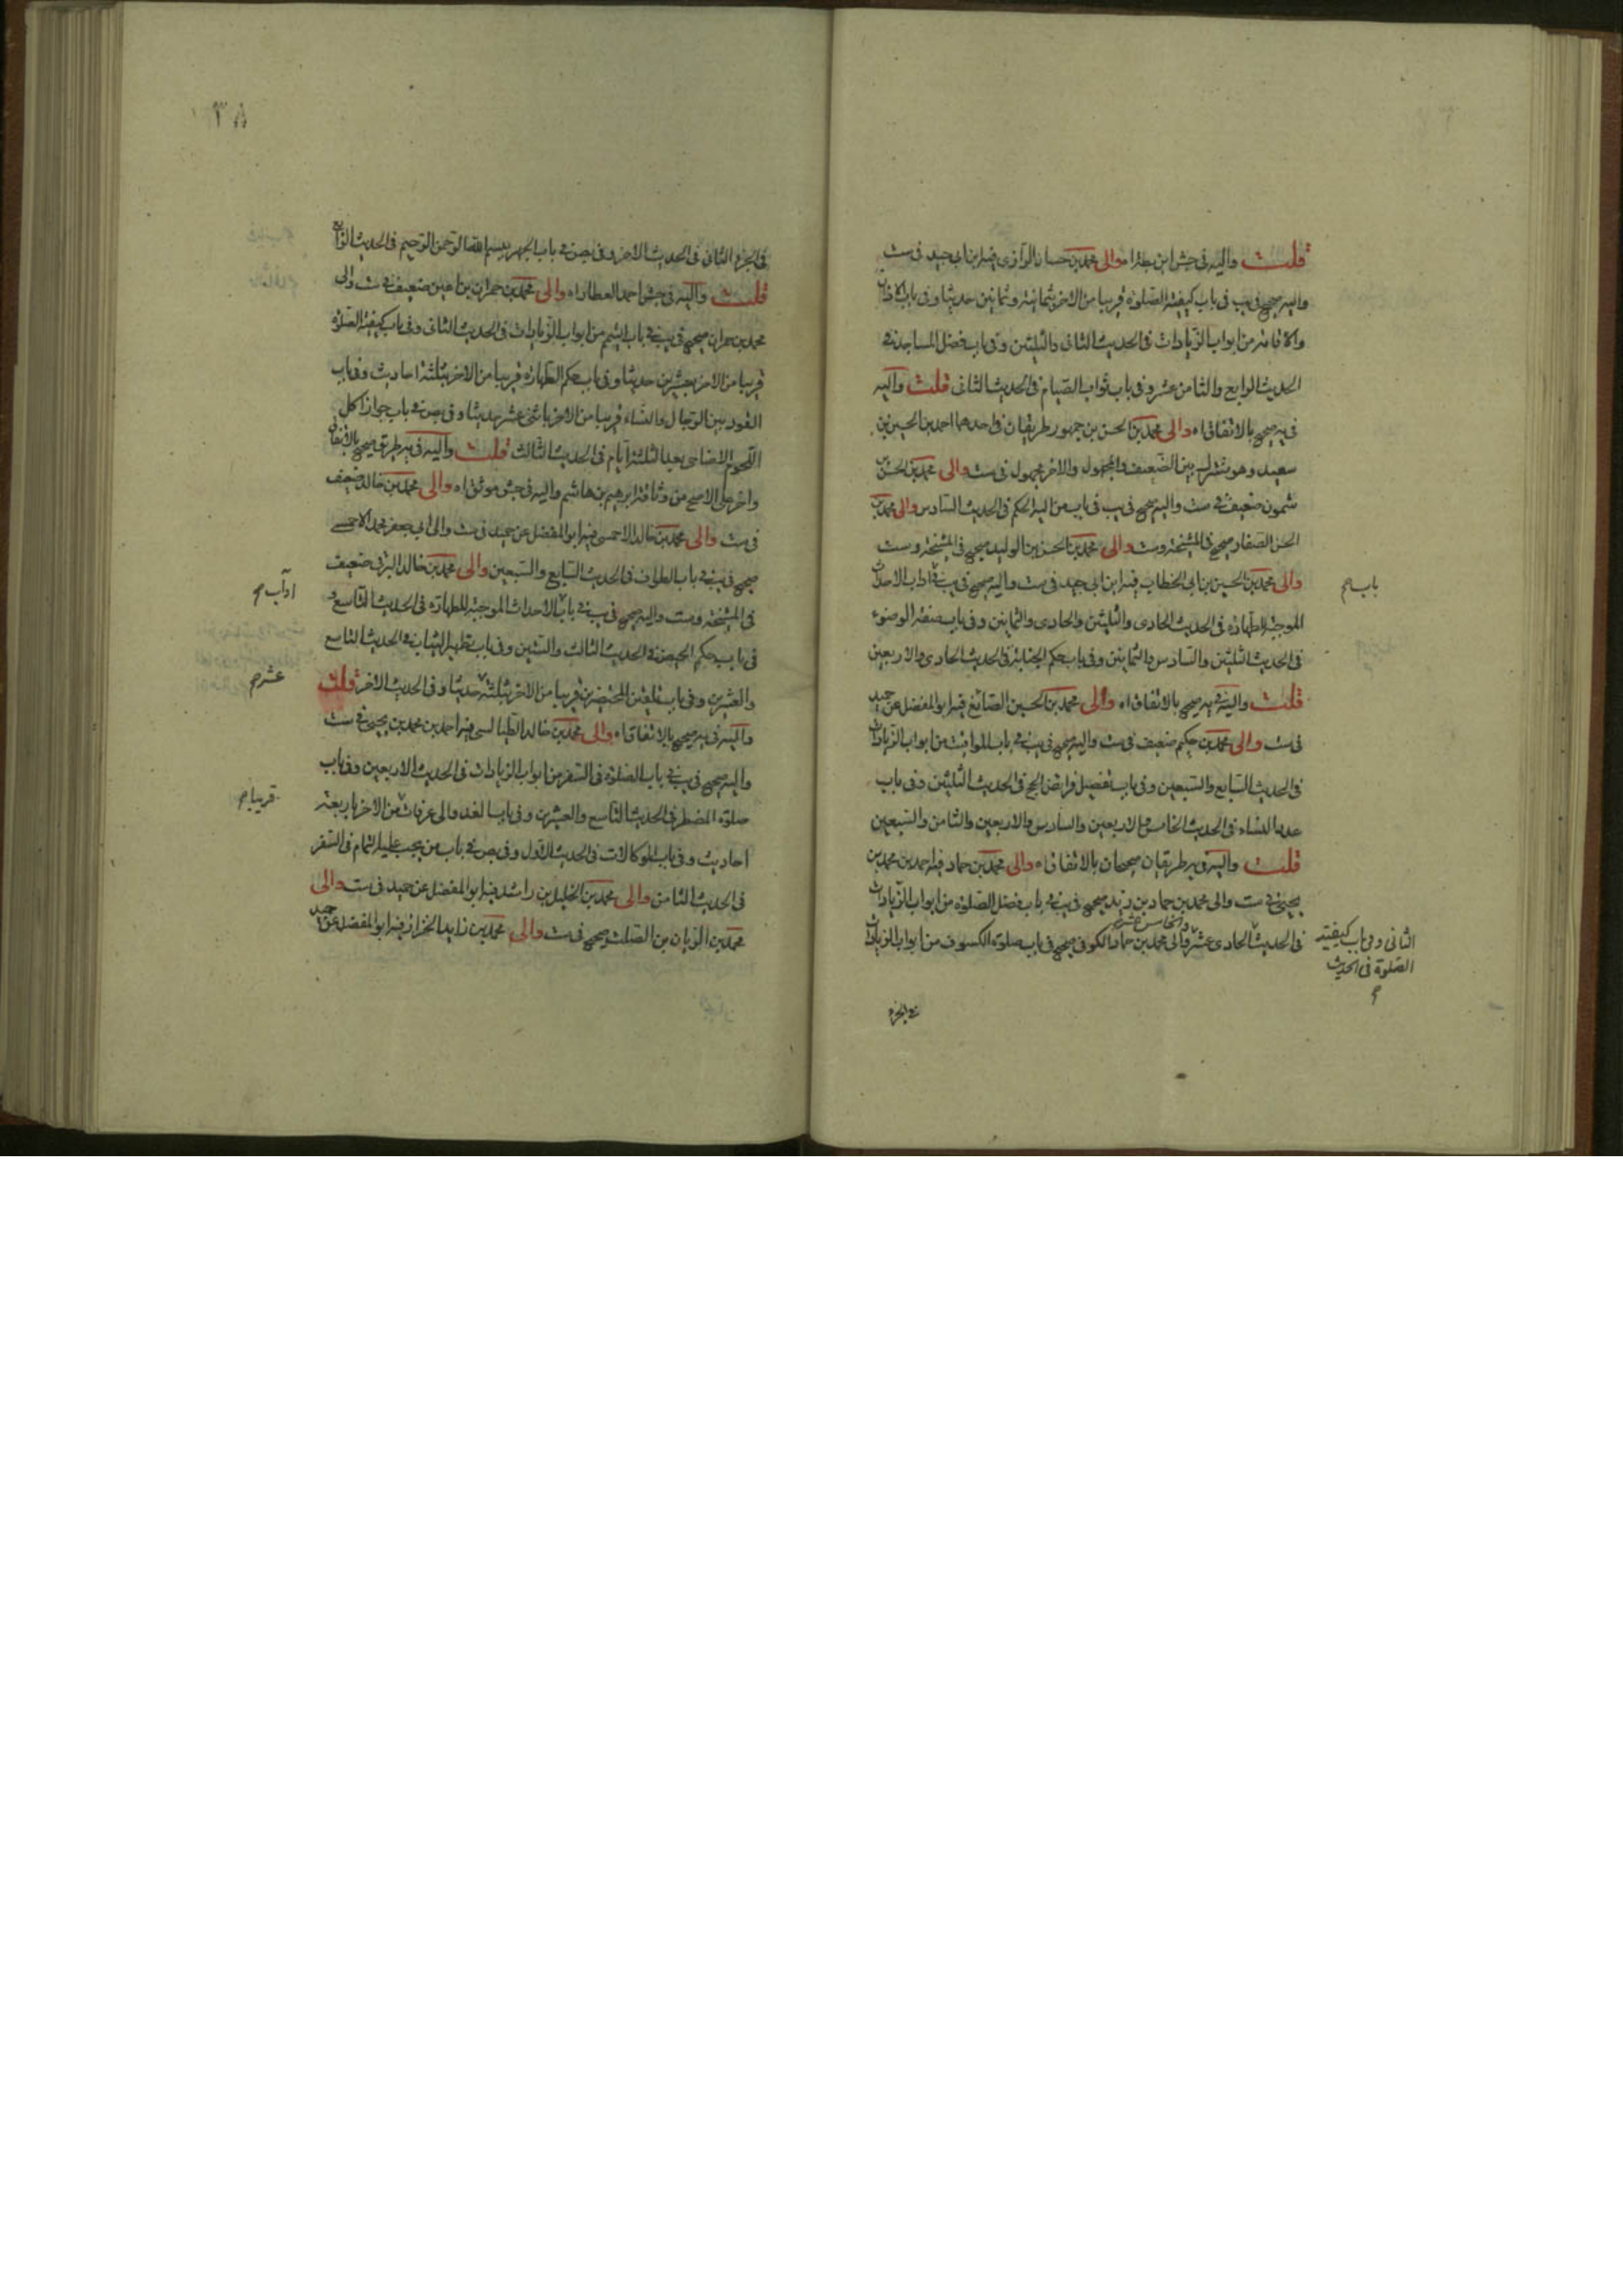 قلت واليه في جش ابن بطة اه والى محمد بن حسان الرازي فيه ابن ابي جيد في ست
واليه صحيح في يب في باب كيفية الصلوة قريبا من الاخر بثمانية وثمانين حديثا وفي باب الاذان
والاقامة من ابواب الزيادات في الحديث الثاني والثلثين وفي باب فضل المساجد في
الحديث الرابع والثامن عشر وفي باب ثواب الصيام في الحديث الثاني قلت واليه
في يه صحيح بالاتفاق اه والى محمد بن الحسن بن جمهور طريقان في احدهما احمد بن الحسين بن
سعيد وهو مشترك بين الضعيف والمجهول والاخر مجهول في ست والى محمد بن الحسن بن
شمون ضعيف في ست واليه صحيح في يب في باب من اليه الحكم في الحديث السادس والى محمد بن
الحسن الصفار صحيح في المشيخة وست والى محمد بن الحسن بن الوليد صحيح في المشيخة وست
والى محمد بن الحسين بن ابي الخطاب فيه ابن ابي جيد في ست واليه صحيح في يب في اداب الاحداث
باب صح
الموجبة للطهارة في الحديث الحادي والثلثين والحادي والثمانين وفي باب صفة الوضوء
في الحديث الثلثين والسادس والثمانين وفي باب حكم الجنابة في الحديث الحادي والاربعين
قلت واليه في يه صحيح بالاتفاق اه والى محمد بن الحسين الصائغ فيه ابو المفضل عن حميد
في ست والى محمد بن حكيم ضعيف في ست واليه صحيح في يب في باب المواقيت من ابواب الزيادات
في الحديث السابع والسبعين وفي باب تفصيل فرائض الحج في الحديث الثلثين وفي باب
عدد النساء في الحديث الخامس والاربعين والسادس والاربعين والثامن والسبعين
قلت واليه في يه طريقان صحيحان بالاتفاق اه والى محمد بن حماد فيه احمد بن محمد بن
يحيى في ست والى محمد بن حماد بن زيد صحيح في يب في باب فضل الصلوة من ابواب الزيادات
في الحديث الحادي عشر والخامس عشر والى محمد بن حماد الكوفي صحيح في باب صلوة الكسوف من ابواب الزيادات
الثاني وفي باب كيفية
الصلوة في الحديث
صح
في الجزء
٣٨
في الجزء الثاني في الحديث الاخر وفي بص في باب الجهر ببسم الله الرحمن الرحيم في الحديث الرابع
قلت واليه في جش احمد العطار اه والى محمد بن حمران بن اعين ضعيف في ست والى
محمد بن حمران صحيح في يب في باب التيمم من ابواب الزيادات في الحديث الثاني وفي باب كيفية الصلوة
قريبا من الاخر بعشرين حديثا وفي باب حكم الظهار قريبا من الاخر بثلثة احاديث وفي باب
القود بين الرجال والنساء قريبا من الاخر باثنى عشر حديثا وفي بص في باب جواز اكل
اللحوم الاضاحى بعد الثلثة ايام في الحديث الثالث قلت واليه في يه طريق صحيح بالاتفاق
واخر على الاصح من وثاقة ابراهيم بن هاشم واليه في جش موثق اه والى محمد بن خالد ضعيف
في ست والى محمد بن خالد الاحمسي فيه ابو المفضل عن حميد في ست والى ابي جعفر محمد الاحمسي
صحيح في يب في باب الطواف في الحديث السابع والسبعين والى محمد بن خالد البرقي ضعيف
في المشيخة وست واليه صحيح في يب في باب الاحداث الموجبة للطهارة في الحديث التاسع و
اداب صح
في باب حكم الحيض في الحديث الثالث والستين وفي باب تطهير الثياب في الحديث التاسع
والعشرين وفي باب تلقين المحتضرين قريبا من الاخر بثلثة حديثا وفي الحديث الاخر قلت
عشر صح
واليه في يه صحيح بالاتفاق اه والى محمد بن خالد الطيالسي فيه احمد بن محمد بن يحيى في ست
واليه صحيح في يب في باب الصلوة في السفر من ابواب الزيادات في الحديث الاربعين وفي باب
صلوة المضطر في الحديث التاسع والعشرين وفي باب الغدو الى عرفات من الاخر باربعة
قريبا صح
احاديث وفي باب الوكالات في الحديث الاول وفي بص في باب من يجب عليه التمام في السفر
في الحديث الثامن والى محمد بن الخليل بن راشد فيه ابو المفضل عن حميد في ست والى
محمد بن الريان بن الصلت صحيح في ست والى محمد بن زايد الخزاز فيه ابو المفضل عن حميد